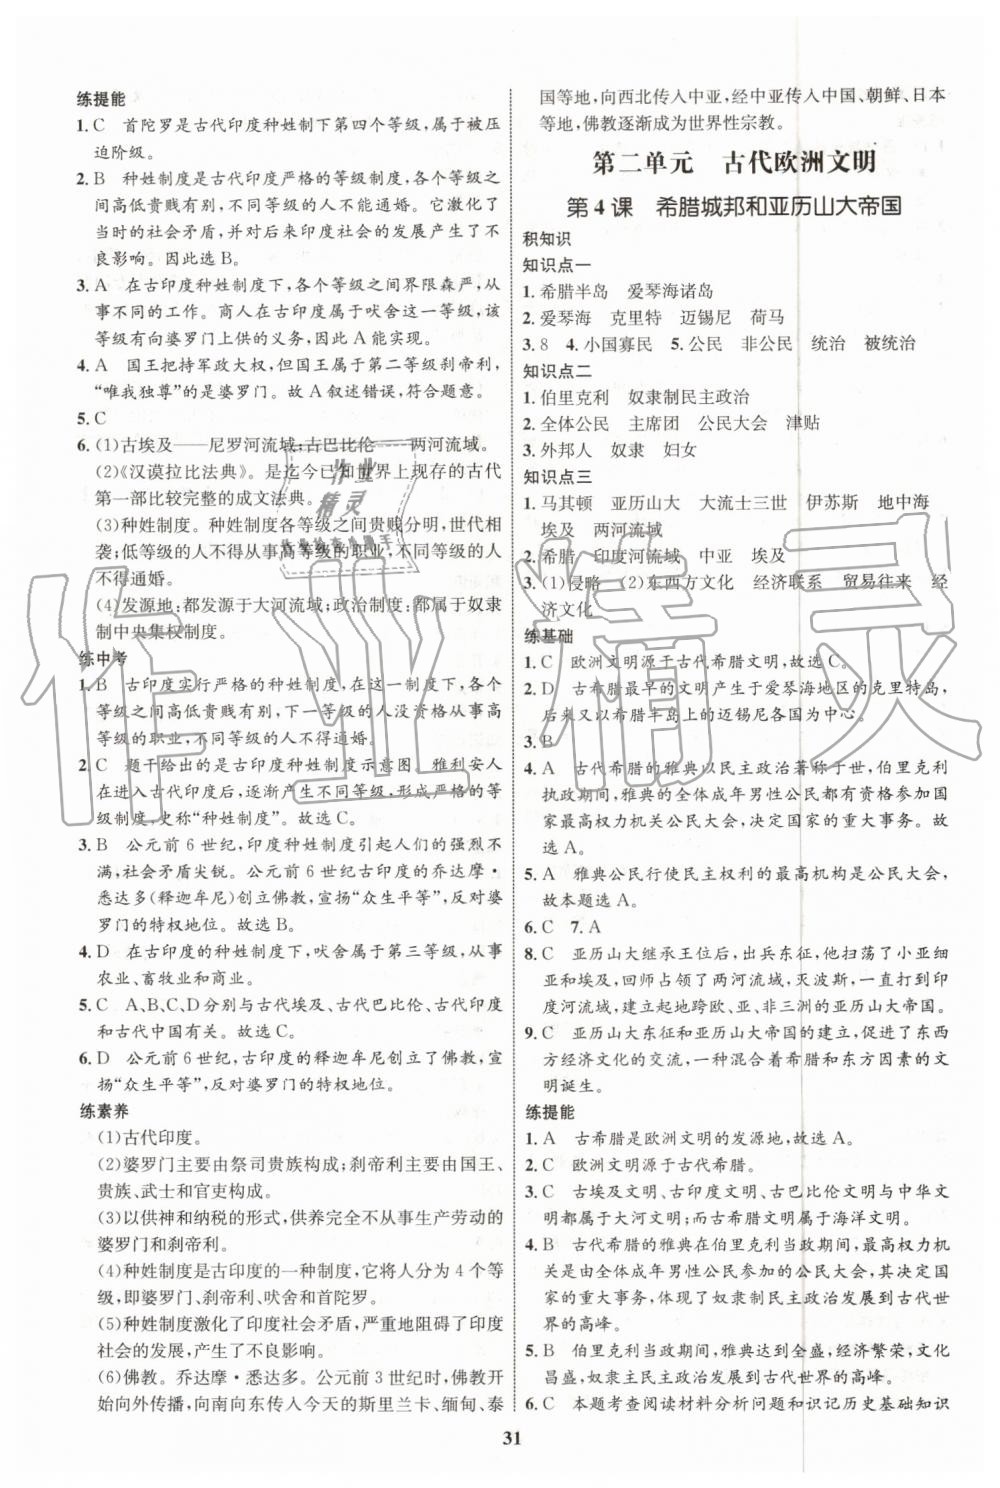 练提能
1. C　首陀罗是古代印度种姓制下第四个等级,属于被压
迫阶级。
2. B　种姓制度是古代印度严格的等级制度,各等级之
间高低贵贱有别,不同等级的人不能通婚。它激化了
当时的社会矛盾,并对后来印度社会的发展产生了不
良影响。因此选 B。
3. A　在古印度种姓制度下,各个等级之间界限森严,从
事不同的工作。商人在古印度属于吠舍这一等级,该
等级有向婆罗门上供的义务,因此 A 能实现。
4. A　国王把持军政大权,但国王属于第二等级刹帝利,
“唯我独尊”的是婆罗门。故 A 叙述错误,符合题意。
5. C
6. (1)古埃及——尼罗河流域;古巴比伦——两河流域。
(2)《汉谟拉比法典》。是迄今已知世界上现存的古代
第一部比较完整的成文法典。
(3)种姓制度。种姓制度各等级之间贵贱分明,世代相
袭;低等级的人不得从事高等级的职业,不同等级的人
不得通婚。
(4)发源地:都发源于大河流域;政治制度:都属于奴隶
制中央集权制度。
练中考
1. B　古印度实行严格的种姓制度,在这一制度下,各个
等级之间高低贵贱有别,下一等级的人没资格从事高
等级的职业,不同等级的人不得通婚。
2. C　题干给出的是古印度种姓制度示意图。雅利安人
在进入古代印度后,逐渐产生不同等级,形成严格的等
级制度,史称“种姓制度”。故选 C。
3. B　公元前 6 世纪,印度种姓制度引起人们的强烈不
满,社会矛盾尖锐。公元前 6 世纪古印度的乔达摩·
悉达多(释迦牟尼)创立佛教,宣扬“众生平等”,反对婆
罗门的特权地位。故选 B。
4. D　在古印度的种姓制度下,吠舍属于第三等级,从事
农业、畜牧业和商业。
5. C　A、B、C、D 分别与古代埃及、古代巴比伦、古代印度
和古代中国有关。故选 C。
6. D　公元前 6 世纪,古印度的释迦牟尼创立了佛教,宣
扬“众生平等”,反对婆罗门的特权地位。
练素养
(1)古代印度。
(2)婆罗门主要由祭司贵族构成;刹帝利主要由国王、
贵族、武士和官吏构成。
(3)以供神和纳税的形式,供养完全不从事生产劳动的
婆罗门和刹帝利。
(4)种姓制度是古印度的一种制度,它将人分为 4 个等
级,即婆罗门、刹帝利、吠舍和首陀罗。
(5)种姓制度激化了印度社会矛盾,严重地阻碍了印度
社会的发展,产生了不良影响。
(6)佛教。乔达摩·悉达多。公元前 3 世纪时,佛教开
始向外传播,向南向东传入今天的斯里兰卡、缅甸、泰
国等地,向西北传入中亚,经中亚传入中国、朝鲜、日本
等地,佛教逐渐成为世界性宗教。
第二单元　古代欧洲文明
第 4 课　希腊城邦和亚历山大帝国
积知识
知识点一
1. 希腊半岛　爱琴海诸岛
2. 爱琴海　克里特　迈锡尼　荷马
3. 8　4. 小国寡民　5. 公民　非公民　统治　被统治
知识点二
1. 伯里克利　奴隶制民主政治
2. 全体公民　主席团　公民大会　津贴
3. 外邦人　奴隶　妇女
知识点三
1. 马其顿　亚历山大　大流士三世　伊苏斯　地中海
埃及　两河流域
2. 希腊　印度河流域　中亚　埃及
3. (1)侵略　(2)东西方文化　经济联系　贸易往来　经
济文化
练基础
1. C　欧洲文明源于古代希腊文明,故选 C。
2. D　古希腊最早的文明产生于爱琴海地区的克里特岛,
后来又以希腊半岛上的迈锡尼各国为中心。
3. B
4. A　古代希腊的雅典以民主政治著称于世,伯里克利
执政期间,雅典的全体成年男性公民都有资格参加国
家最高权力机关公民大会,决定国家的重大事务。故
选 A。
5. A　雅典公民行使民主权利的最高机构是公民大会,
故本题选 A。
6. C　7. A
8. C　亚历山大继承王位后,出兵东征,他扫荡了小亚细
亚和埃及,回师占领了两河流域,灭波斯,一直打到印
度河流域,建立起地跨欧、亚、非三洲的亚历山大帝国。
9. C　亚历山大东征和亚历山大帝国的建立,促进了东西
方经济文化的交流,一种混合着希腊和东方因素的文
明诞生。
练提能
1. A　古希腊是欧洲文明的发源地,故选 A。
2. C　欧洲文明源于古代希腊。
3. C　古埃及文明、古印度文明、古巴比伦文明与中华文
明都属于大河文明;而古希腊文明属于海洋文明。
4. B　古代希腊的雅典在伯里克利当政期间,最高权力机
关是由全体成年男性公民参加的公民大会,其决定国
家的重大事务,体现了奴隶制民主政治发展到古代世
界的高峰。
5. B　伯里克利当政期间,雅典达到全盛,经济繁荣,文化
昌盛,奴隶主民主政治发展到古代世界的高峰。
6. C　本题考查阅读材料分析问题和识记历史基础知识
31
作业精灵
作业
精灵
作业检查小助手